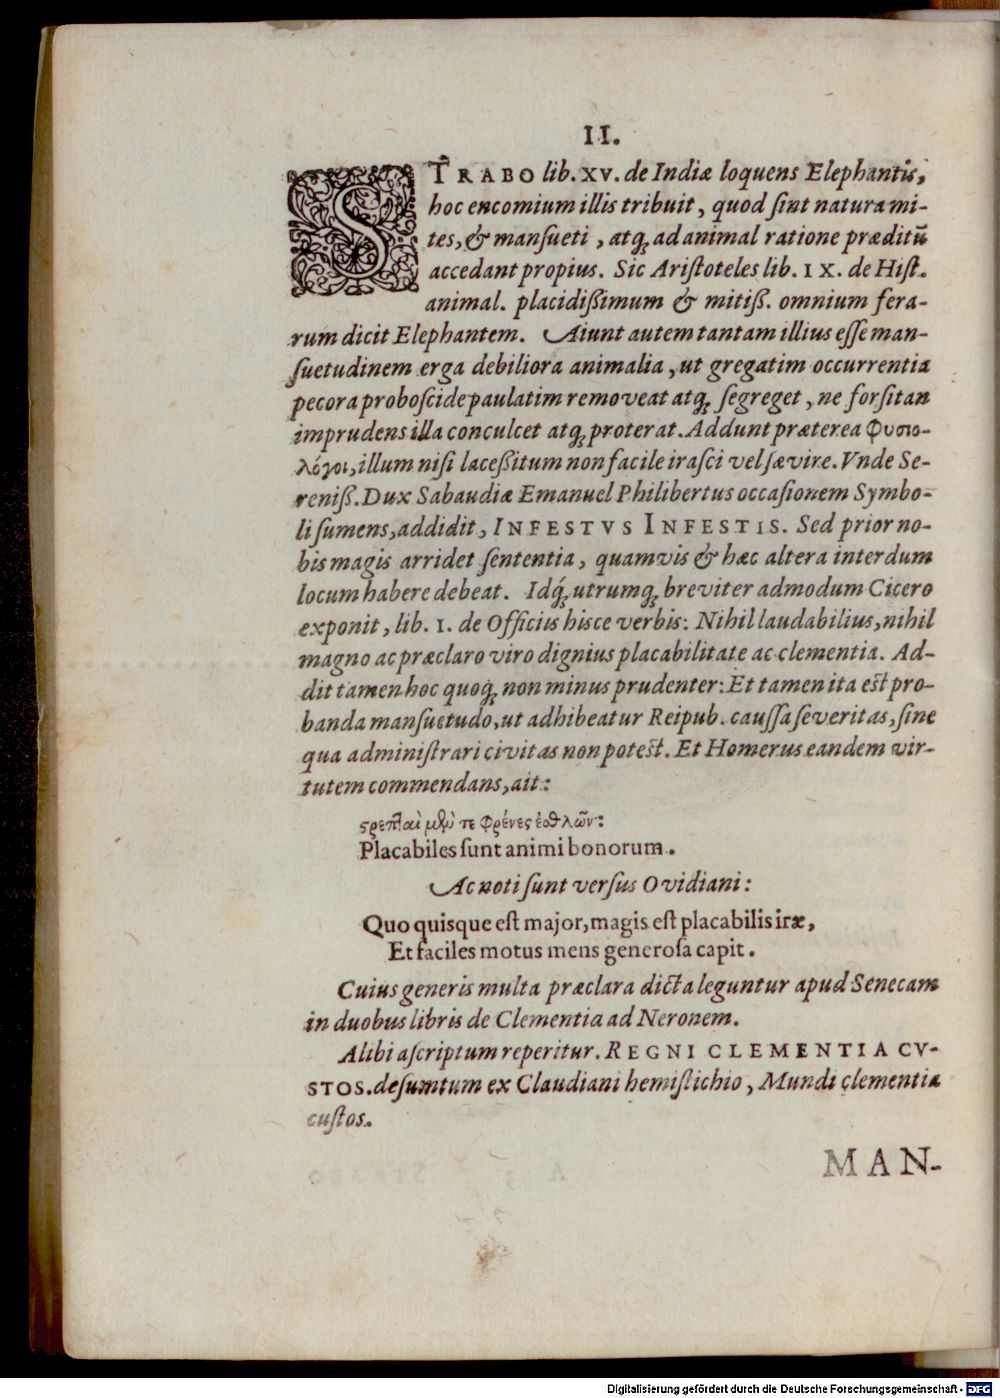 II.
STRABO lib. XV. de Indiæ loquens Elephantis,
hoc encomium illis tribuit, quod ſint natura mi-
tes, & manſueti, atq; ad animal ratione præditũ
accedant propius. Sic Ariſtoteles lib. IX. de Hiſt.
animal. placidißimum & mitiß. omnium fera-
rum dicit Elephantem. Aiunt autem tantam illius eſſe man-
ſuetudinem erga debiliora animalia, ut gregatim occurrentia
pecora proboſcide paulatim removeat atq; ſegreget, ne forſitan
imprudens illa conculcet atq; proterat. Addunt præterea Φυσιο-
λόγοι, illum niſi laceßitum non facile iraſci vel ſævire. Vnde Se-
reniß. Dux Sabaudiæ Emanuel Philibertus occaſionem Symbo-
li ſumens, addidit, INFESTVS INFESTIS. Sed prior no-
bis magis arridet ſententia, quamvis & hæc altera interdum
locum habere debeat. Idq́; utrumq; breviter admodum Cicero
exponit, lib. I. de Officiis hisce verbis: Nihil laudabilius, nihil
magno ac præclaro viro dignius placabilitate ac clementia. Ad-
dit tamen hoc quoq; non minus prudenter: Et tamen ita eſt pro-
banda manſuetudo, ut adhibeatur Reipub. cauſſa ſeveritas, ſine
qua adminiſtrari civitas non poteſt. Et Homerus eandem vir-
tutem commendans, ait:
ςρεπλαὶ μϐύ τε Φρένες ἐσθλῶν:
Placabiles ſunt animi bonorum.
Ac noti ſunt verſus Ovidiani:
Quo quisque eſt major, magis eſt placabilis iræ,
Et faciles motus mens generoſa capit.
Cuius generis multa præclara dicta leguntur apud Senecam
in duobus libris de Clementia ad Neronem.
Alibi aſcriptum reperitur. REGNI CLEMENTIA CV-
STOS. deſumtum ex Claudiani hemiſtichio, Mundi clementia
cuſtos.
MAN-
Digitalisierung gefördert durch die Deutsche Forschungsgemeinschaft - DFG